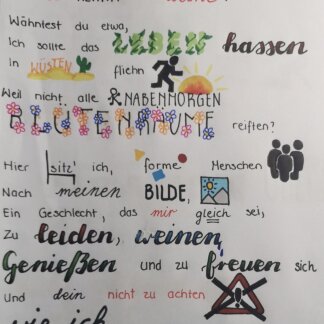 Wähntest du etwa,
Ich sollte das LEBEN hassen
in WÜSTEN fliehn
Weil nicht alle KNABENMORGEN
BLÜTENTRÄUME reiften?
Hier sitz' ich, forme Menschen
Nach meinen BILDE,
Ein Geschlecht, das mir gleich sei,
Zu leiden, weinen,
Genießen und zu freuen sich
Und dein nicht zu achten
wie ich